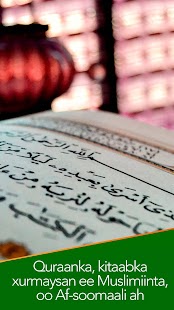 أَسْرَىٰ بِعَبْدِهِ لَيْلًا
حَوْلَهُ لِنُرِيَهُ مِنْ
الْكِتَٰبَ
Quraanka, kitaabka
xurmaysan ee Muslimiinta,
oo Af-soomaali ah